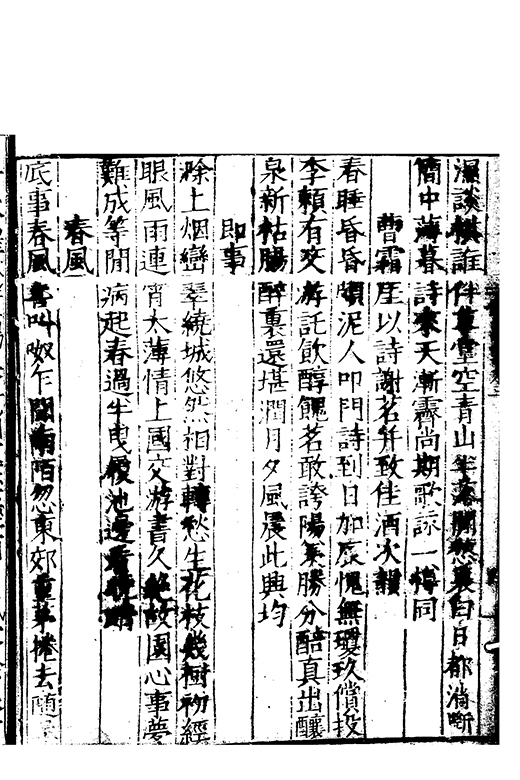 漫談棋誰伴尊罍空青山半落闌愁裏白日都消嘶
簡中薄暮詩來天漸霽尚期歌詠一樽同
曹霜厓以詩謝茗并致佳酒次韻
春睡昏昏頓泥人叩門詩到日加辰愧無瓊玖償投
李賴有交游託飲醇餽茗敢誇陽羨勝分醅真出釀
泉新枯腸醉裏還堪潤月夕風晨此興均
即事
滁上烟巒翠繞城悠然相對轉愁生花枝幾樹初經
眼風雨連宵太薄情上國交游書久絕故園心事夢
難成等閒病起春過半曳履池邊看
春風
底事春風喜叫呶乍聞南陌忽東郊重茅捲去隨